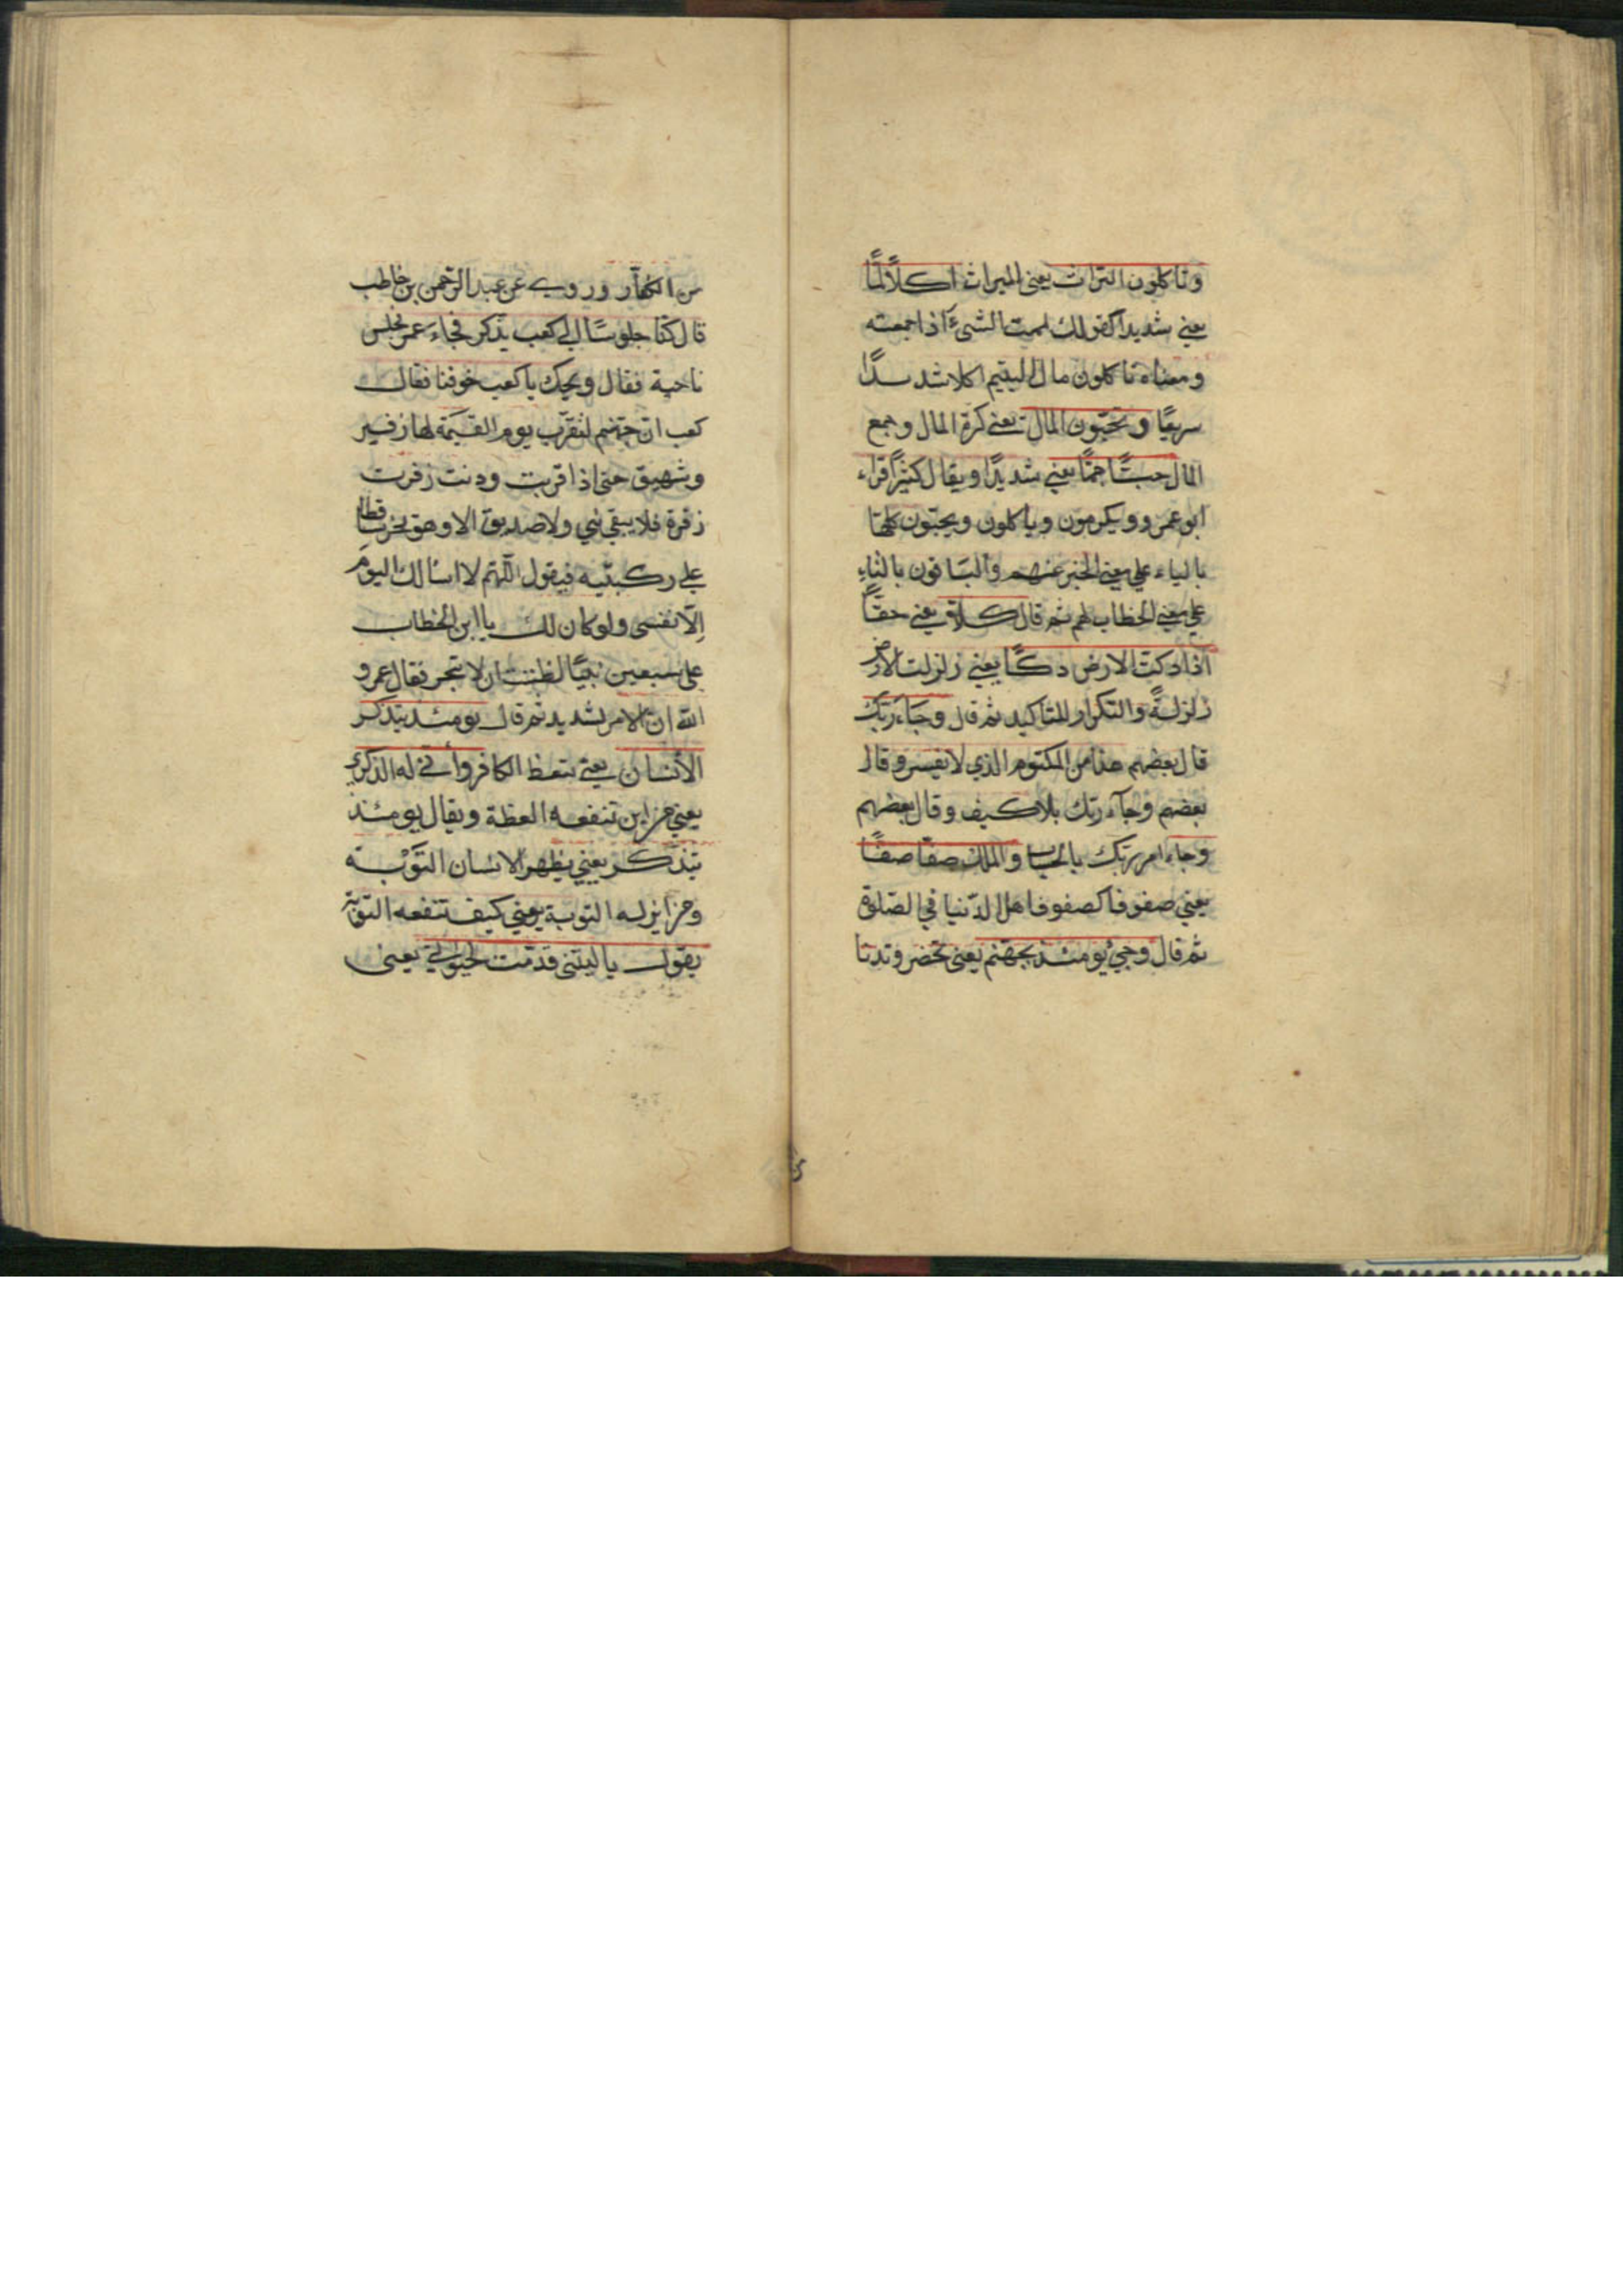 وتاكلون التراث يعني الميراث اكلا لمّا
يعني شديدا كقولك لممت الشيء اذا جمعته
ومعناه تاكلون مال اليتيم اكلا شديدا
سريعًا وتحبّون المال يعني كثرة المال وجمع
المال حبًّا جمًّا يعني شديدًا ويقال كثيرًا قراء
ابو عمرو ويكرمون وياكلون ويحبّون كلها
بالياء على معنى الخبر عنهم والباقون بالتاء
على معنى الخطاب لهم ثم قال كلا يعني حقًّا
اذا دكت الارض دكًّا يعني زلزلت الارض
زلزلةً والتكرار للتاكيد ثم قال وجاء ربّك
قال بعضهم هذا من المكتوم الذي لا يفسر وقال
بعضهم وجاء ربّك بلا كيف وقال بعضهم
وجاء امر ربّك بالحساب والملك صفّا صفًّا
يعني صفوفا كصفوف اهل الدّنيا في الصّلوة
ثم قال وجيء يومئذ بجهنّم يعني تحضر وتدنا
من الكفّار وروي عن عبد الرّحمن بن حاطب
قال كنّا جلوسًا الى كعب يذكر فجاء عمر فجلس
ناحية فقال ويحك يا كعب خوفنا فقال
كعب انّ جهنّم لتقرّب يوم القيٰمة لها زفير
وشهيق حتى اذا قربت ودنت زفرت
زفرة فلا يبقى نبي ولا صديق الا وهو يخر ساقطا
على ركبتيه فيقول اللّهم لا اسالك اليوم
الّا نفسي ولو كان لك يا ابن الخطاب
على سبعين نبيًّا لظننت ان لا تنجر فقال عمر و
اللّه انّ الامر لشديد ثم قال يومئذ يتذكر
الانسان يعني يتعظ الكافر وأنّى له الذكرى
يعني من اين تنفعه العظة ويقال يومئذ
يتذكر يعني يظهر الانسان التوبة
ومن اين له التوبة يعني كيف تنفعه التوبة
يقول يا ليتني قدّمت لحيوتي يعني